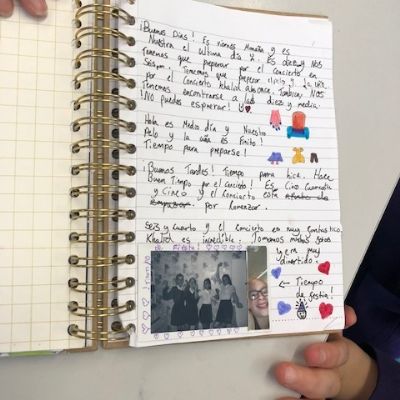 ¡Buenos Días! Es viernes Mañana y es
Nuestra el ultima día. Es diez y Nos
Tenemos que peparar por el Concierto en
Tenemos que preparar el pelo y La uña.
por el Concierto Khalid alcance. También, Nos
Tenemos encontrarse a las diez y media.
¡NO puedes esperar!
Hola es Medio día y Nuestro
Pelo y la uña es Finito!
Tiempo para prepararse!
¡Buenas Tardes! Tiempo para hica. Hace
Buen Tiempo por el Concierto! Es Cinco
y Cinco y el Concierto esta
por Komenzar.
Seis y Cuarto y el Concierto en muy fantástico.
Khalid es increíble. Tomamos muchas fotos
y era muy
divertido.
← Tiempo
de fiesta!